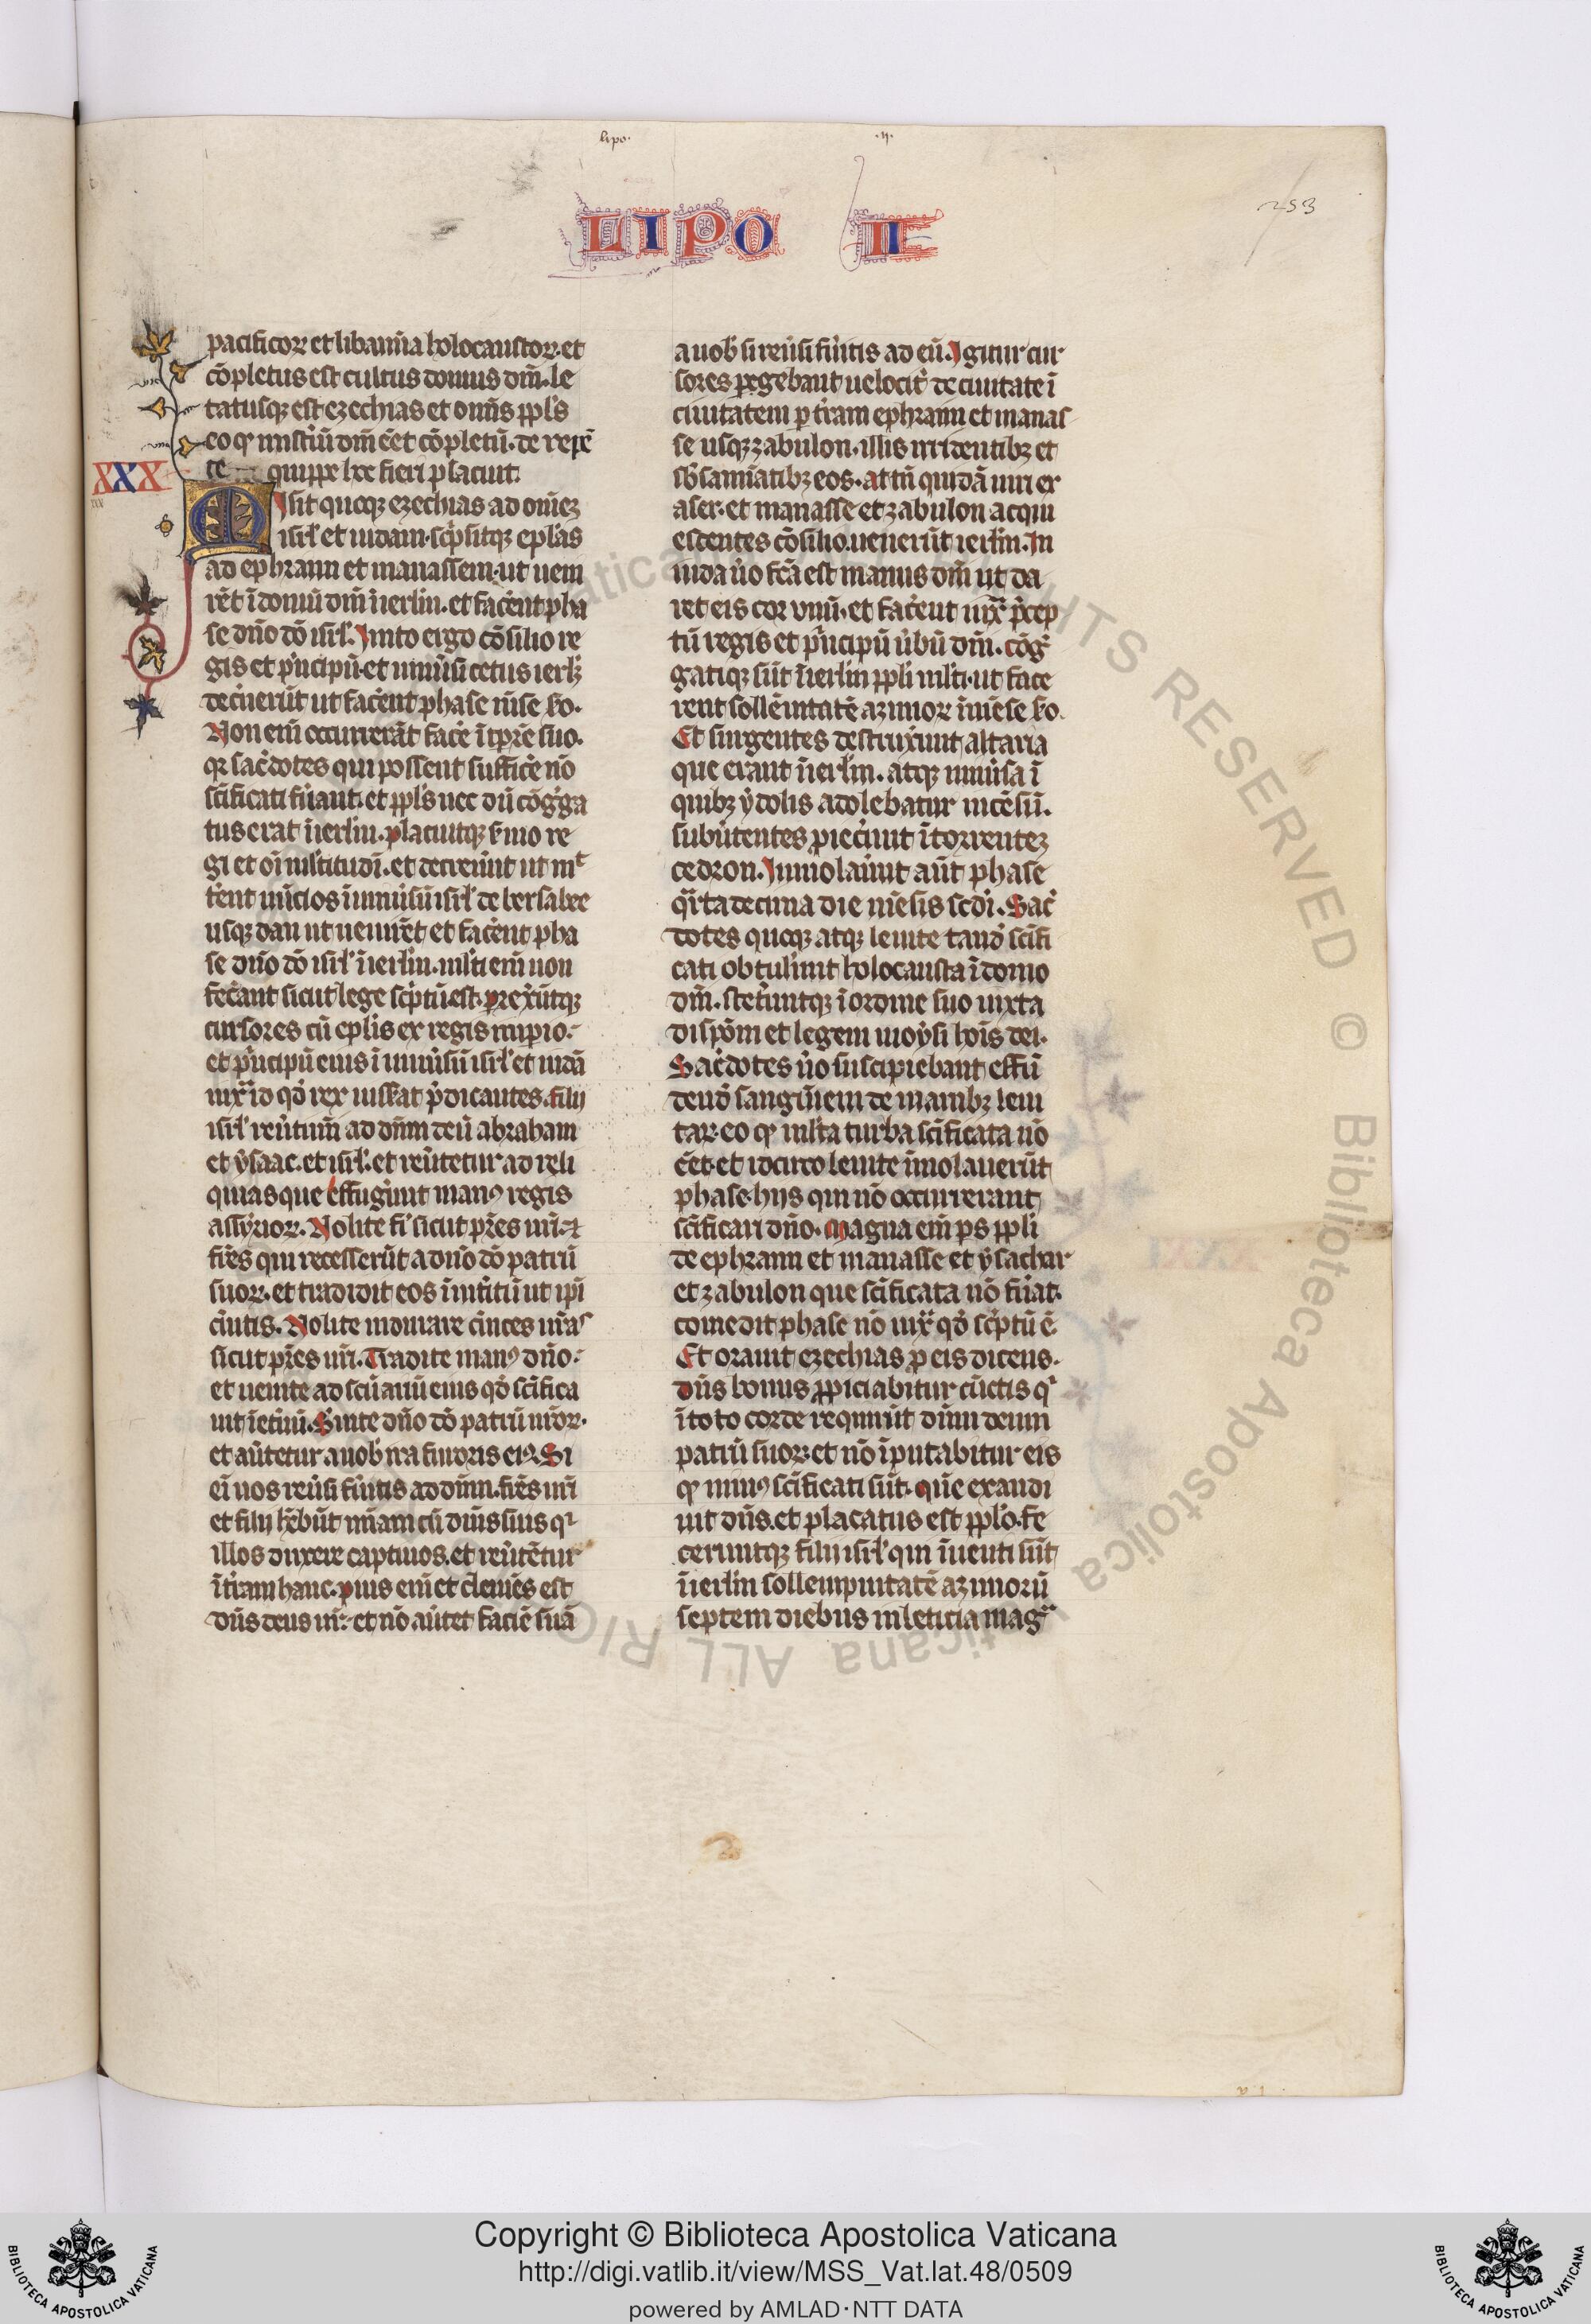 lipo.
.ij.
253
LIPO II
pacificoꝝ et libamīa holocaustoꝝ. et
cōpletus est cultus domus dn̄i. le
tatusqꝫ est ezechias et om̄is ppl̓s
eo ꝙ mīst̓iū dn̄i eēt cōpletū. de repē
te quippe hec fieri placuit.
XXX
Misit quoqꝫ ezechias ad om̄eꝫ
isrl̓ et iudam. sc̓psitqꝫ epl̓as
ad ephraim et manassem. ut ueni
rēt ī domū dn̄i ī ierlm̄. et fac̓ent pha
se dn̄o dō isrl̓. Inito ergo cōsilio re
gis et p̓ncipū. et uniu̓si cetus ierlꝫ
decreu̓ūt ut fac̓ent phase mēse sc̄do.
Non em̄ occurrerāt fac̓e ī tꝑre suo.
qꝛ sac̓dotes qui possent suffic̓e nō
sc̄ificati fu̓ant. et ppl̓s nec dū cōg̓ga
tus erat ī ierlm̄. placuitqꝫ s̓mo re
gi et oī ml̓titudī. et decreu̓ūt ut mit
t̓ent nūcios ī uniu̓sū isrl̓ de bersabee
usqꝫ dan ut uenirēt et fac̓ent pha
se dn̄o dō isrl̓ ī ierlm̄. ml̓ti em̄ non
fec̓ant sicut lege sc̓ptū est. prex̓ūtqꝫ
cursores cū eplis ex regis impio.
et p̓ncipū eius ī uniu̓sū isrl̓ et iudā
iux̄ id qd̓ rex iuss̓at p̓dicantes. filij
isrl̓ reu̓timī ad dn̄m deū abraham
et ysaac. et isrl̓. et reu̓tetur ad reli
quias que effug̓ūt manꝰ regis
assyrioꝝ. Nolite fi̓ sicut pr̄es uri. et
fr̄es qui recesserūt a dn̄o dō patrū
suoꝝ. et tradidit eos ī int̓itū ut ip̄i
c̓nitis. Nolite indurare c̓uices ur̄as
sicut pr̄es uri. Tradite manꝰ dn̄o.
et uenite ad scūariū eius qd̓ sc̄ifica
uit ī et̓nū. S̓uite dn̄o dō patrū ur̄oꝝ.
et au̓tetur a uob̓ ira furoris eiꝰ. Si
ei uos reu̓si fu̓itis ad dn̄m. fr̄es uri
et filij hēbūt mīam cū dn̄is suis qi
illos duxere captiuos. et reu̓tētur
ī t̓ram hanc. pius em̄ et clemēs est
dn̄s deus ur̄. et nō au̓tet faciē suā
a uob̓ si reu̓si fu̓itis ad eū. Igitur cur
sores pergebant uelocit̓ de ciuitate ī
ciuitatem p t̓ram ephraim et manas
se usqꝫ zabulon. illis irridentibꝫ et
sb̓sanīatibꝫ eos. attn̄ quidā uiri ex
aser. et manasse et zabulon acqui
escentes cōsilio. uenerūt ierlm̄. In
iuda u̓o fcā est manus dn̄i ut da
ret eis cor vnū. et fac̓ent iuxͣ p̓cep
tū regis et p̓ncipū u̓bū dn̄i. cōg̓
gatiqꝫ sūt ī ierlm̄ ppli ml̓ti. ut face
rent sollēnitatē azimoꝝ ī mēse sc̄do.
Et surgentes destruxerunt altaria
que erant ī ierlm̄. atqꝫ uniu̓sa ī
quibꝫ ydolis adolebatur incēsū.
subu̓tentes proiec̓unt ī torrenteꝫ
cedron. Immolau̓unt aūt phase
qͣrta decima die mēsis scd̓i. Sac̓
dotes quoqꝫ atqꝫ leuite tand̓ sc̄ifi
cati obtul̓unt holocausta ī domo
dn̄i. stet̓untqꝫ ī ordine suo iuxta
dispōm et legem moysi hoīs dei.
Sac̓dotes u̓o suscipiebant effū
dend̓ sanguīem de manibꝫ leui
taꝝ. eo ꝙ ml̓ta turba sc̄ificata nō
eēt. et idcirco leuite īmolauerūt
phase. hijs qui nō occurrerant
sc̄ificari dn̄o. Magna em̄ ps ppli
de ephraim et manasse et ysachar
et zabulon que sc̄ificata nō fu̓at.
comedit phase nō iuxͣ qd̓ sc̓ptū ē.
Et orauit ezechias p eis dicens.
dn̄s bonus ppiciabitur cūctis qi
ī toto corde requirūt dnm̄ deum
patrū suoꝝ. et nō īputabitur eis
ꝙ minꝰ sc̄ificati sūt. quē exaudi
uit dn̄s. et placatus est ppl̓o. fe
ceruntqꝫ filij isrl̓ qui īuenti sūt
ī ierlm̄ sollempnitatē azimorū
septem diebus in leticia magͣ
Copyright © Biblioteca Apostolica Vaticana
http://digi.vatlib.it/view/MSS_Vat.lat.48/0509
powered by AMLAD·NTT DATA
BIBLIOTECA APOSTOLICA VATICANA
BIBLIOTECA APOSTOLICA VATICANA
ALL RIGHTS RESERVED © Biblioteca Apostolica Vaticana ALL RIGHTS